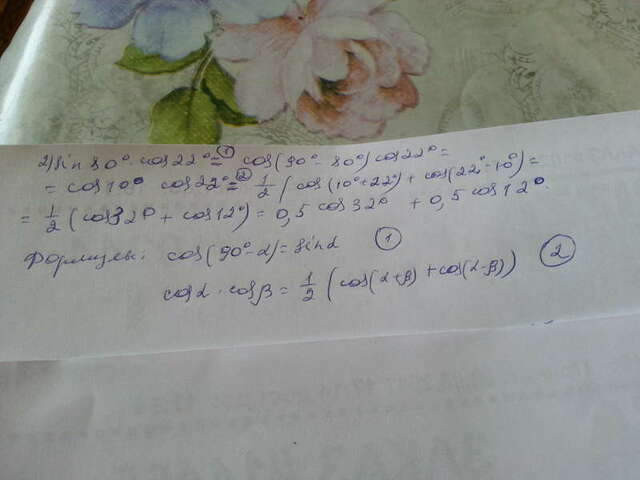 2) sin 80° · cos 22° =① cos(90° - 80°) cos 22° =
= cos 10° cos 22° =② 1/2 (cos(10° + 22°) + cos(22° - 10°) =
= 1/2 (cos 32° + cos 12°) = 0,5 cos 32° + 0,5 cos 12°.
Формулы: cos(90° - α) = sin α ①
cos α · cos β = 1/2 (cos(α+β) + cos(α-β)) ②